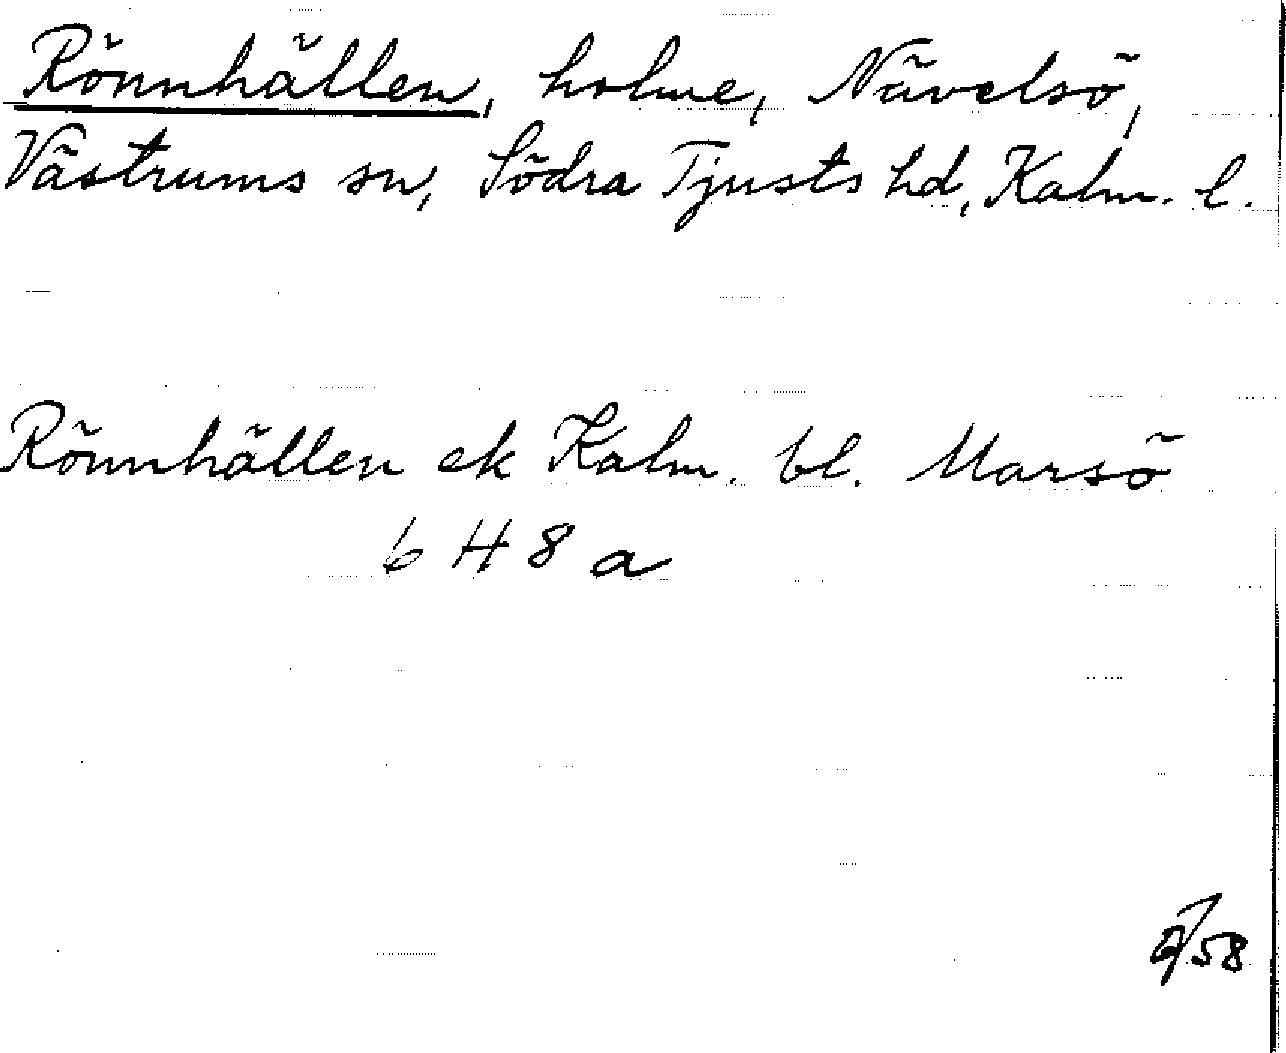 Rönnhällen, holme, Nävelsö,
Västrums sn, Södra Tjusts hd, Kalm. l.
Rönnhällen ek Kalm. bl. Marsö
6 H 8 a
58